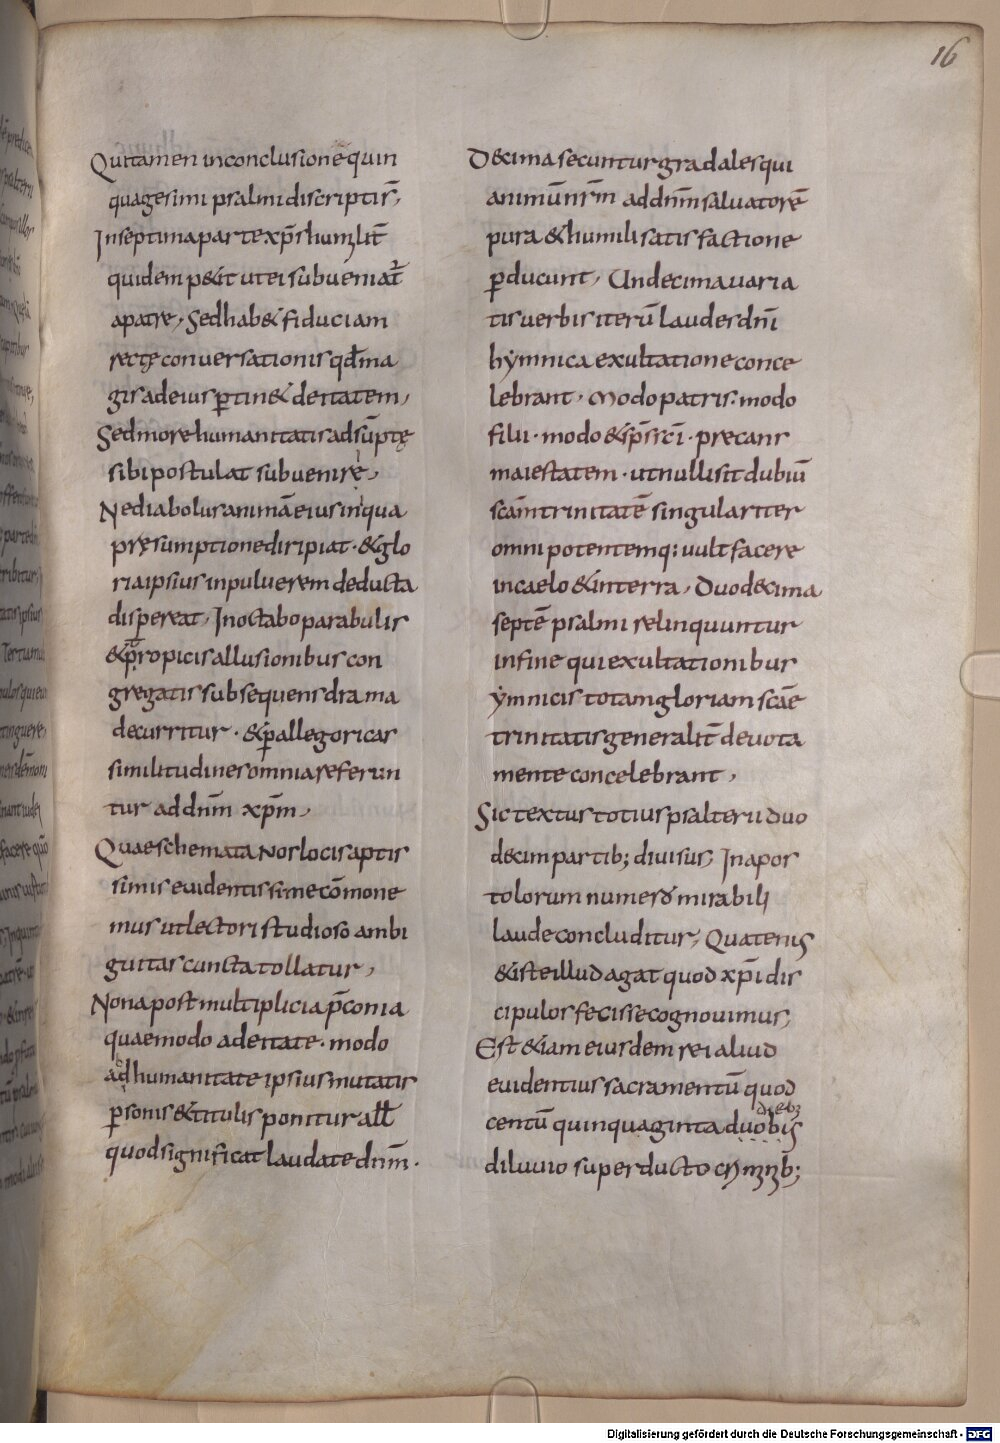 16
Qui tamen in conclusione quin
quagesimi psalmi discriptis,
In septima parte xp̄s humilit̄
quidem p&it ut ei subueniat̄
a patre, Sed hab& fiduciam
rectę conuersationis qđ ma
gis ad eius ꝑtin& deitatem,
Sed more humanitatis adsūptę
sibi postulat subuenire,
Ne diabolus animā eius iniqua
presumptione diripiat · & glo
ria ipsius in puluerem deducta
dispereat, In octabo parabulis
& tropicis allusionibus con
gregatis subsequens drama
decurritur · & ꝑ allegoricas
similitudines omnia referun
tur ad dn̄m xp̄m,
Quae schemata nos locis aptis
simis euidentissime cōmone
mus ut lectori studioso ambi
guitas cuncta tollatur,
Nona post multiplicia p̄conia
quae modo a deitate · modo
ab humanitate ipsius mutatis
ꝑsonis & titulis ponitur all̄
quod significat laudate dnm̄ ·
Decima secuntur gradales qui
animū nr̄m ad dn̄m saluatorē
pura & humili satisfactione
ꝑducunt, Undecima uaria
tis uerbis iterū laudes dn̄i
hẏmnica exultatione conce
lebrant, modo patris · modo
filii · modo & sp̄s sc̄i · precans
maiestatem · ut nulli sit dubiū
sc̄am trinitatē singulariter
omnipotentem q; uult facere
in caelo & in terra, Duodecima
septē psalmi relinquuntur
in fine qui exultationibus
ẏmnicis totam gloriam sc̄ae
trinitatis generalit̄ deuota
mente concelebrant,
Sic textus totius psalterii duo
decim partib; diuisus, In apos
tolorum numero mirabili
laude concluditur, Quatenus
& iste illud agat quod xp̄i dis
cipulos fecisse cognouimus,
Est &iam eiusdem rei aliud
euidentius sacramentū quod
dieb;
centū quinquaginta duobis
diluuio superducto